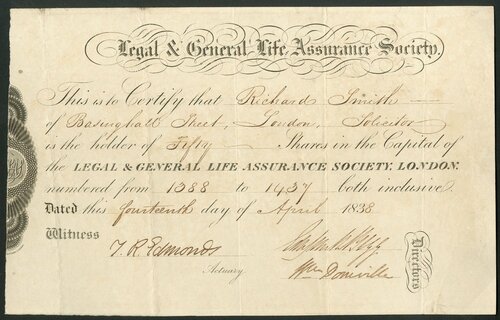 Legal & General Life Assurance Society.
This is to Certify that Richard Smith
of Basinghall Street, London, Solicitor
is the holder of Fifty Shares in the Capital of
the LEGAL & GENERAL LIFE ASSURANCE SOCIETY, LONDON,
numbered from 1388 to 1437 both inclusive.
Dated this fourteenth day of April 1838
Witness
T. R. Edmonds
Actuary
Wm Domville
Directors